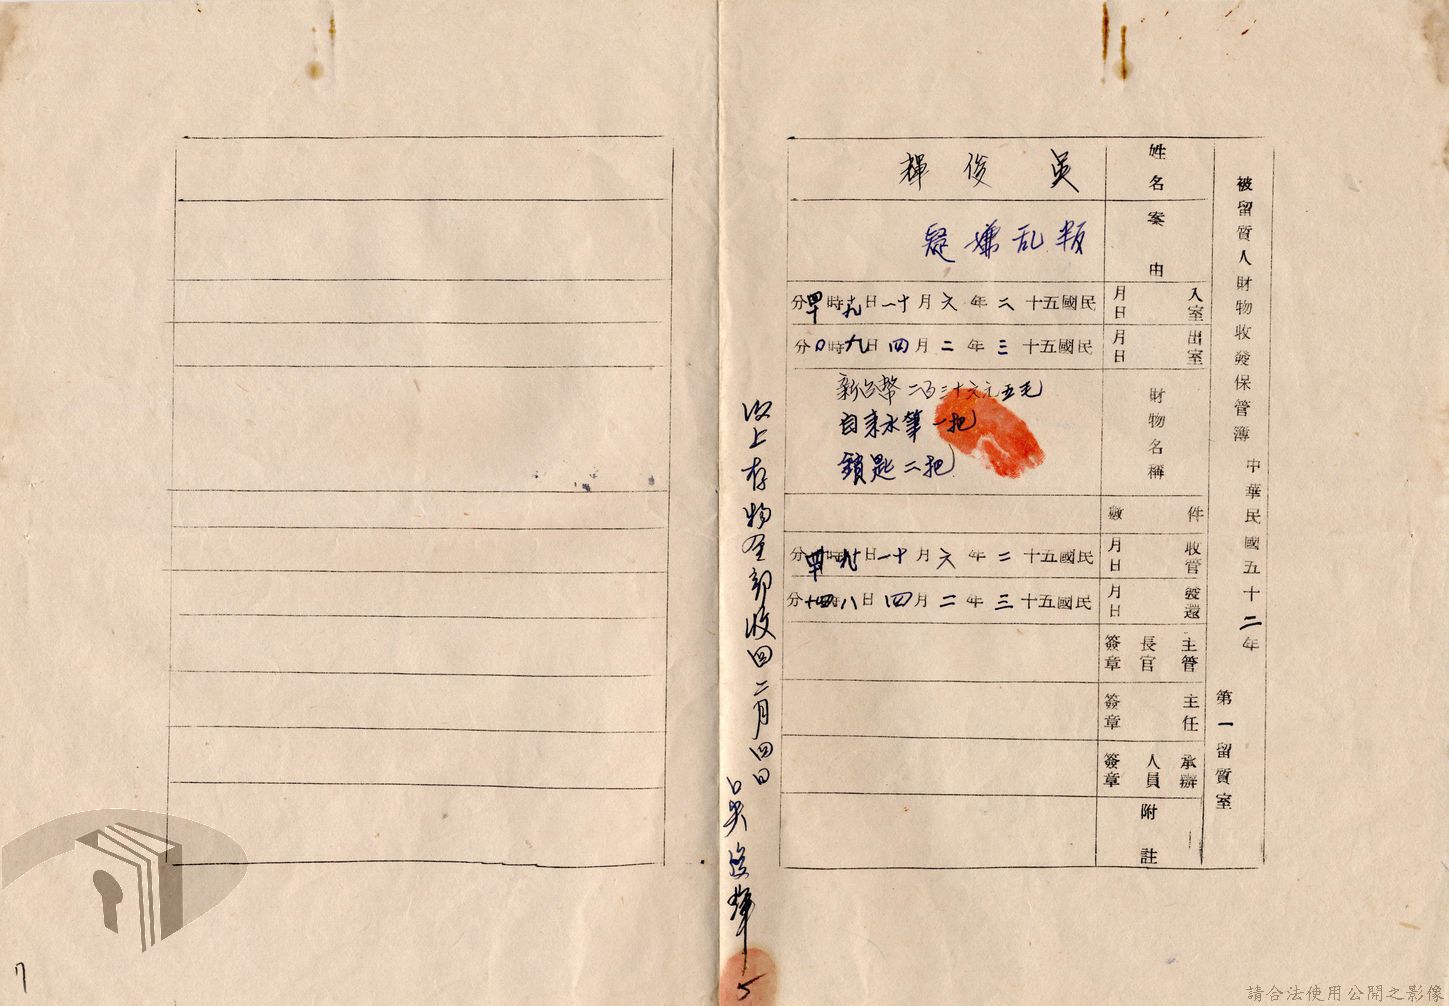 被留質人財物收發保管簿 中華民國五十二年 第一留質室
姓名 吳俊輝
案由 叛乱嫌疑
入室月日 民國五十二年六月十一日十九時四十分
出室月日 民國五十三年二月四日九時0分
財物名稱
新台幣二百三十六元五毛
自來水筆一把
鎖匙二把
件數
收管月日 民國五十二年六月十一日十九時四十分
發還月日 民國五十三年二月四日八時四十分
主管長官簽章
主任簽章
承辦人員簽章
附註
以上存物全部收回二月四日
吳俊輝
7
請合法使用公開之影像